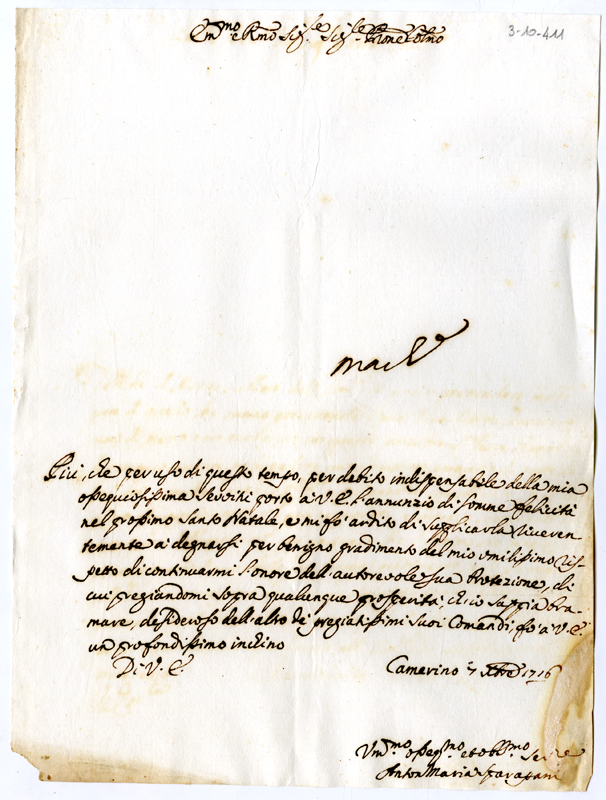 Em.mo e Rmo Sig.re Sig.re Prone Colmo
3-10-411
Più, che per uso di questo tempo, per debito indispensabile della mia
ossequiosissima servitù porto a V. E. l'annunzio di somme felicità
nel prossimo Santo Natale, e mi fò ardito di supplicarla riveren-
temente a degnarsi per benigno gradimento del mio umilissimo ris-
petto di continuarmi l'onore dell'autorevole sua Protezione, di
cui pregiandomi sopra qualunque prosperità, ch'io sappia bra-
mare, desideroso dell'alto de pregiatissimi suoi Comandi, fò a V. E.
un profondissimo inchino
Di V. E.
Camerino 7 Xbre 1716
Vm.mo osseq.mo et obl.mo
Anton Maria